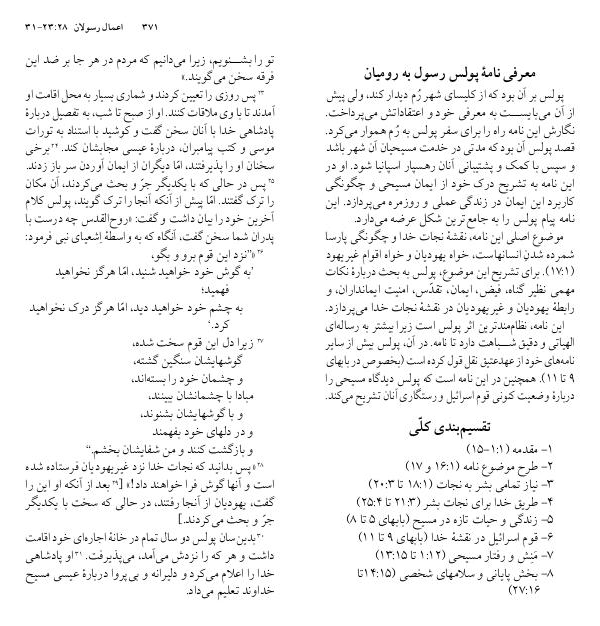 ۳۷۱ اعمال رسولان ۲۳:۲۸-۳۱
معرفی نامهٔ پولس رسول به رومیان
پولس بر آن بود که از کلیسای شهر رُم دیدار کند، ولی پیش
از آن می‌بایست به معرفی خود و اعتقاداتش می‌پرداخت.
نگارش این نامه راه را برای سفر پولس به رُم هموار می‌کرد.
قصد پولس آن بود که مدتی در خدمت مسیحیان آن شهر باشد
و سپس با کمک و پشتیبانی آنان رهسپار اسپانیا شود. او در
این نامه به تشریح درک خود از ایمان مسیحی و چگونگی
کاربرد این ایمان در زندگی عملی و روزمره می‌پردازد. این
نامه پیام پولس را به جامع‌ترین شکل عرضه می‌دارد.
موضوع اصلی این نامه، نقشهٔ نجات خدا و چگونگی پارسا
شمرده شدنِ انسانهاست، خواه یهودیان و خواه اقوام غیریهود
(۱۷:۱). برای تشریح این موضوع، پولس به بحث دربارهٔ نکات
مهمی نظیر گناه، فیض، ایمان، تقدّس، امنیت ایمانداران، و
رابطهٔ یهودیان و غیریهودیان در نقشهٔ نجات خدا می‌پردازد.
این نامه، نظام‌مندترین اثر پولس است زیرا بیشتر به رساله‌ای
الهیاتی و دقیق شباهت دارد تا نامه. در آن، پولس بیش از سایر
نامه‌های خود از عهدعتیق نقل قول کرده است (بخصوص در بابهای
۹ تا ۱۱). همچنین در این نامه است که پولس دیدگاه مسیحی را
دربارهٔ وضعیت کنونی قوم اسرائیل و رستگاری آنان تشریح می‌کند.
تقسیم‌بندی کلّی
۱- مقدمه (۱:۱-۱۵)
۲- طرح موضوع نامه (۱۶:۱ و ۱۷)
۳- نیاز تمامی بشر به نجات (۱۸:۱ تا ۲۰:۳)
۴- طریق خدا برای نجات بشر (۲۱:۳ تا ۲۵:۴)
۵- زندگی و حیات تازه در مسیح (بابهای ۵ تا ۸)
۶- قوم اسرائیل در نقشهٔ خدا (بابهای ۹ تا ۱۱)
۷- مَنِش و رفتار مسیحی (۱:۱۲ تا ۱۳:۱۵)
۸- بخش پایانی و سلامهای شخصی (۱۴:۱۵تا
۲۷:۱۶)
تو را بشنویم، زیرا می‌دانیم که مردم در هر جا بر ضد این
فرقه سخن می‌گویند.»
۲۳ پس روزی را تعیین کردند و شماری بسیار به محل اقامت او
آمدند تا با وی ملاقات کنند. او از صبح تا شب، به تفصیل دربارهٔ
پادشاهی خدا با آنان سخن گفت و کوشید با استناد به تورات
موسی و کتب پیامبران، دربارهٔ عیسی مجابشان کند. ۲۴ برخی
سخنان او را پذیرفتند، امّا دیگران از ایمان آوردن سر باز زدند.
۲۵ پس در حالی که با یکدیگر جرّ و بحث می‌کردند، آن مکان
را ترک گفتند. امّا پیش از آنکه آنجا را ترک گویند، پولس کلام
آخرین خود را بیان داشت و گفت: «روح‌القدس چه درست با
پدران شما سخن گفت، آنگاه که به واسطهٔ اِشعیای نبی فرمود:
۲۶ «"نزد این قوم برو و بگو،
'به گوش خود خواهید شنید، امّا هرگز نخواهید
فهمید؛
به چشم خود خواهید دید، امّا هرگز درک نخواهید
کرد.'
۲۷ زیرا دل این قوم سخت شده،
گوشهایشان سنگین گشته،
و چشمان خود را بسته‌اند،
مبادا با چشمانشان ببینند،
و با گوشهایشان بشنوند،
و در دلهای خود بفهمند
و بازگشت کنند و من شفایشان بخشم."
۲۸ «پس بدانید که نجات خدا نزد غیریهودیان فرستاده شده
است و آنها گوش فرا خواهند داد!» [۲۹ بعد از آنکه او این را
گفت، یهودیان از آنجا رفتند، در حالی که سخت با یکدیگر
جرّ و بحث می‌کردند.]
۳۰ بدین‌سان پولس دو سال تمام در خانهٔ اجاره‌ای خود اقامت
داشت و هر که را نزدش می‌آمد، می‌پذیرفت. ۳۱ او پادشاهی
خدا را اعلام می‌کرد و دلیرانه و بی‌پروا دربارهٔ عیسی مسیح
خداوند تعلیم می‌داد.